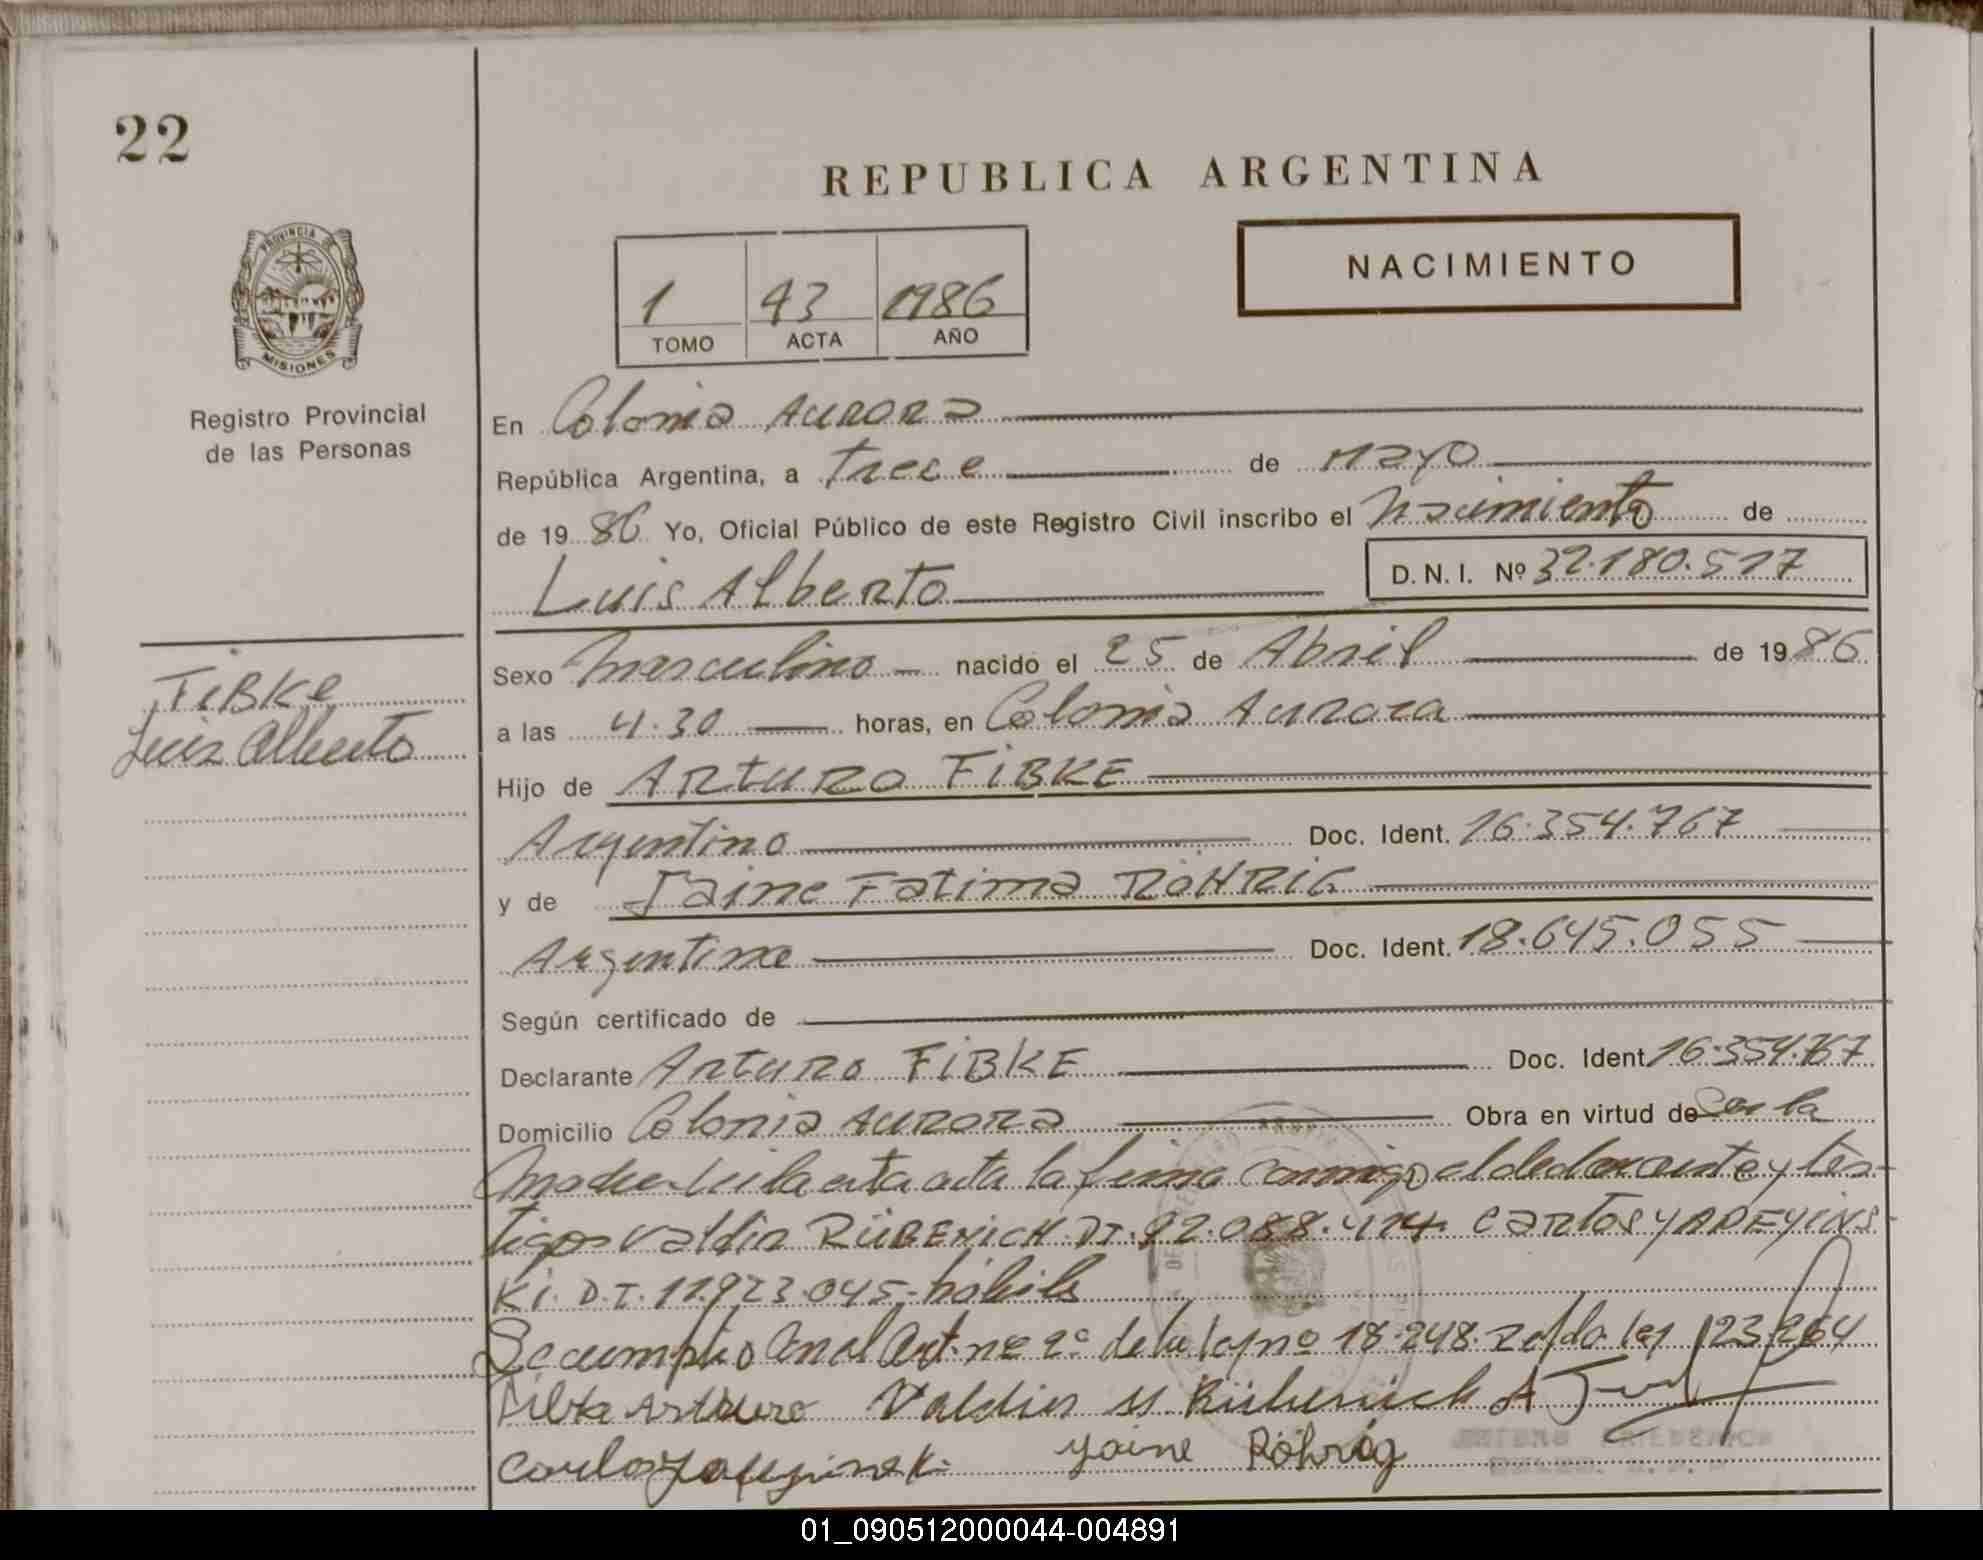 22
REPUBLICA ARGENTINA
NACIMIENTO
1 43 1986
TOMO ACTA AÑO
PROVINCIA DE
MISIONES
Registro Provincial
de las Personas
FiBKe
Luis Alberto
En Colonia Aurora
República Argentina, a Trece de Mayo
de 19 86 Yo, Oficial Público de este Registro Civil inscribo el Nacimiento de
Luis Alberto D.N.I. Nº 32.180.517
Sexo Masculino nacido el 25 de Abril de 19 86
a las 4.30 horas, en Colonia Aurora
Hijo de Arturo FiBKE
Argentino Doc. Ident. 16.354.767
y de Jaine Fatima RÖHRIG
Argentina Doc. Ident. 18.645.055
Según certificado de
Declarante Arturo FiBKE Doc. Ident 16.354.767
Domicilio Colonia Aurora Obra en virtud de Con la
madre Leida esta acta la firma conmigo el declarante y tes-
tigos Valdir RÜBENICH D.I. 92.088.414 Carlos YAREYINS-
Ki. D.I. 11.923.045 hábiles
Se cumplio con el Art. nº 2º de la ley nº 18.248. ley 23.264
Arturo Valdir Rübenich
Carlos Yaine Röhrig
01_090512000044-004891